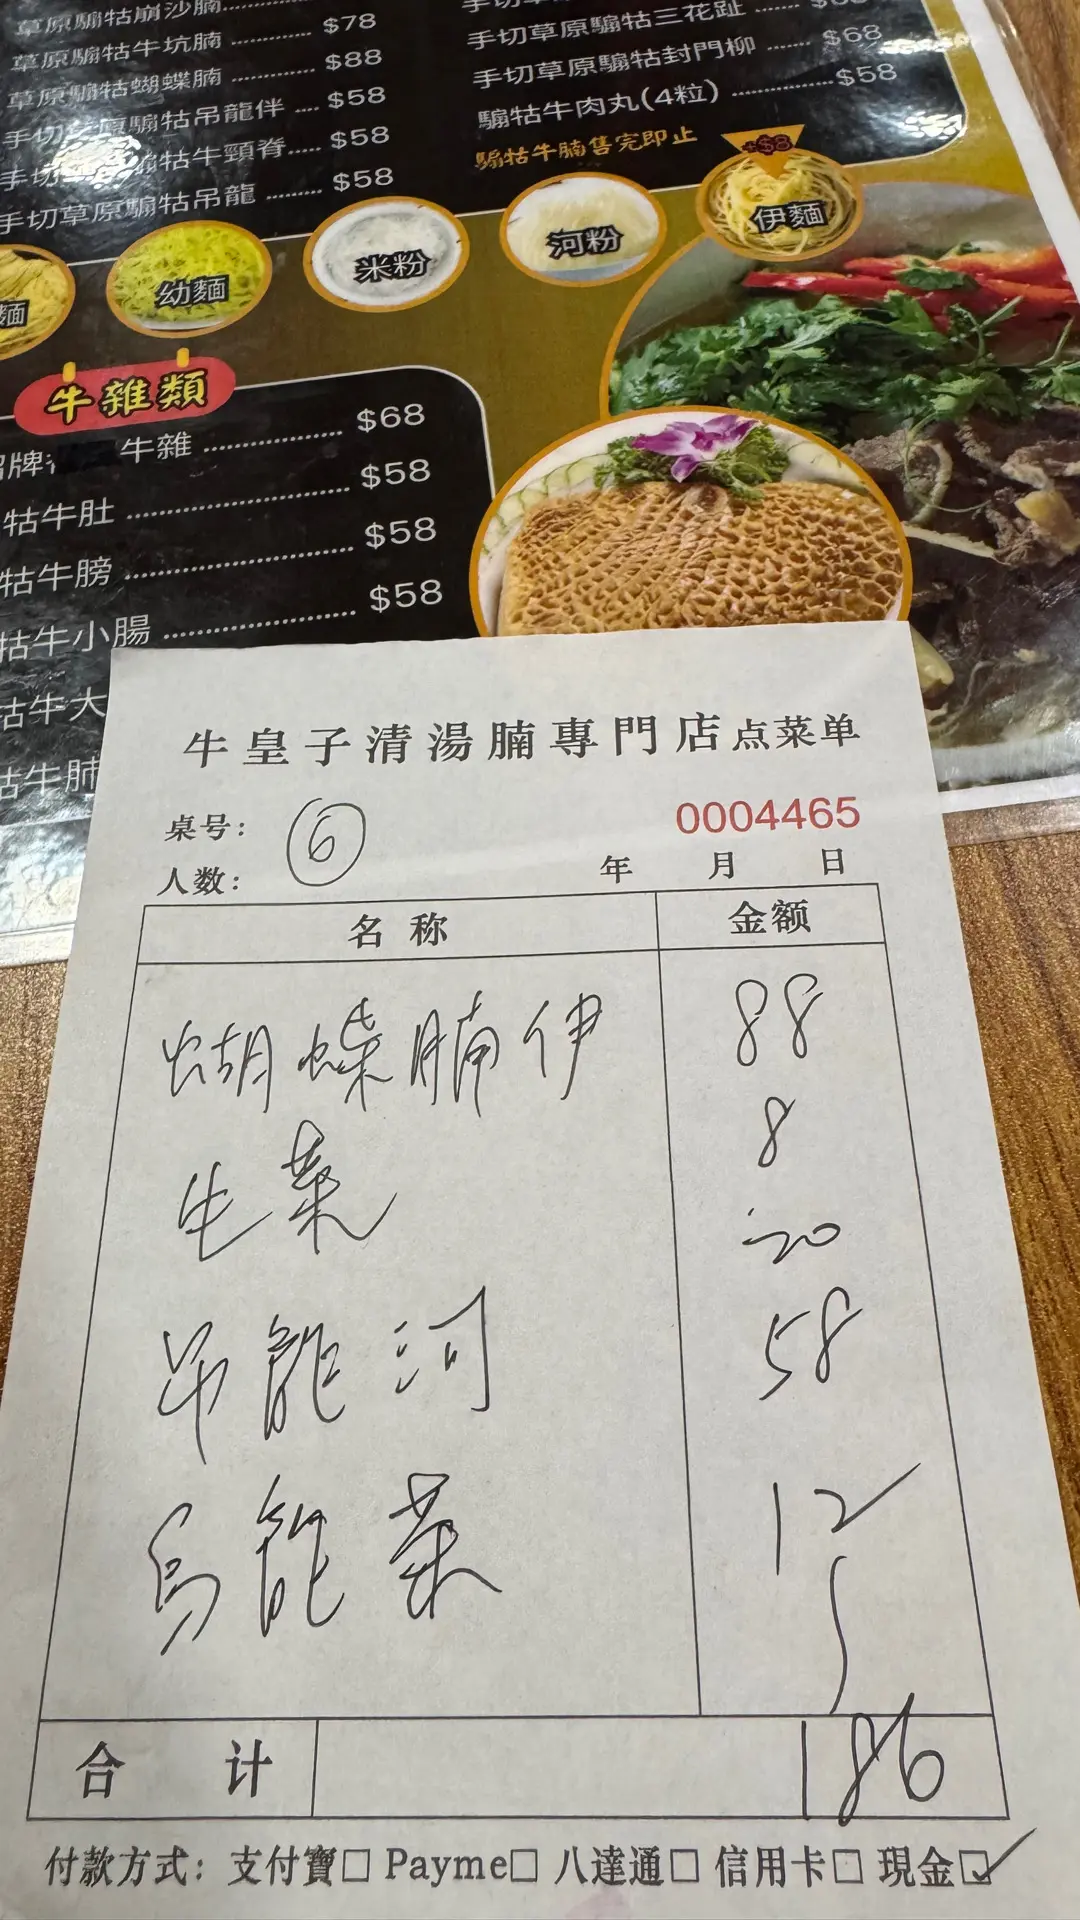 草原騸牯崩沙腩
草原騸牯牛坑腩 ............ $78
草原騸牯蝴蝶腩 ............ $88
原騸牯吊龍伴 .... $58
騸牯牛頸脊..... $58
手切草原騸牯吊龍 ........ $58
手切草原騸牯三花趾 .......
手切草原騸牯封門柳 ....... $68
騸牯牛肉丸(4粒) ............... $58
騸牯牛腩售完即止
+$8
麵
幼麵
米粉
河粉
伊麵
牛雜類
牌 牛雜 .................. $68
牯牛肚 ............................ $58
牯牛膀 ............................ $58
牯牛小腸 ........................ $58
牯牛大
牯牛肺
牛皇子清湯腩專門店点菜单
桌号： 6 0004465
人数： 年 月 日
名称 金额
蝴蝶腩伊 88
生菜 8
20
吊龍河 58
烏龍茶 12
合计 186
付款方式：支付寶□ Payme□ 八達通□ 信用卡□ 現金☑